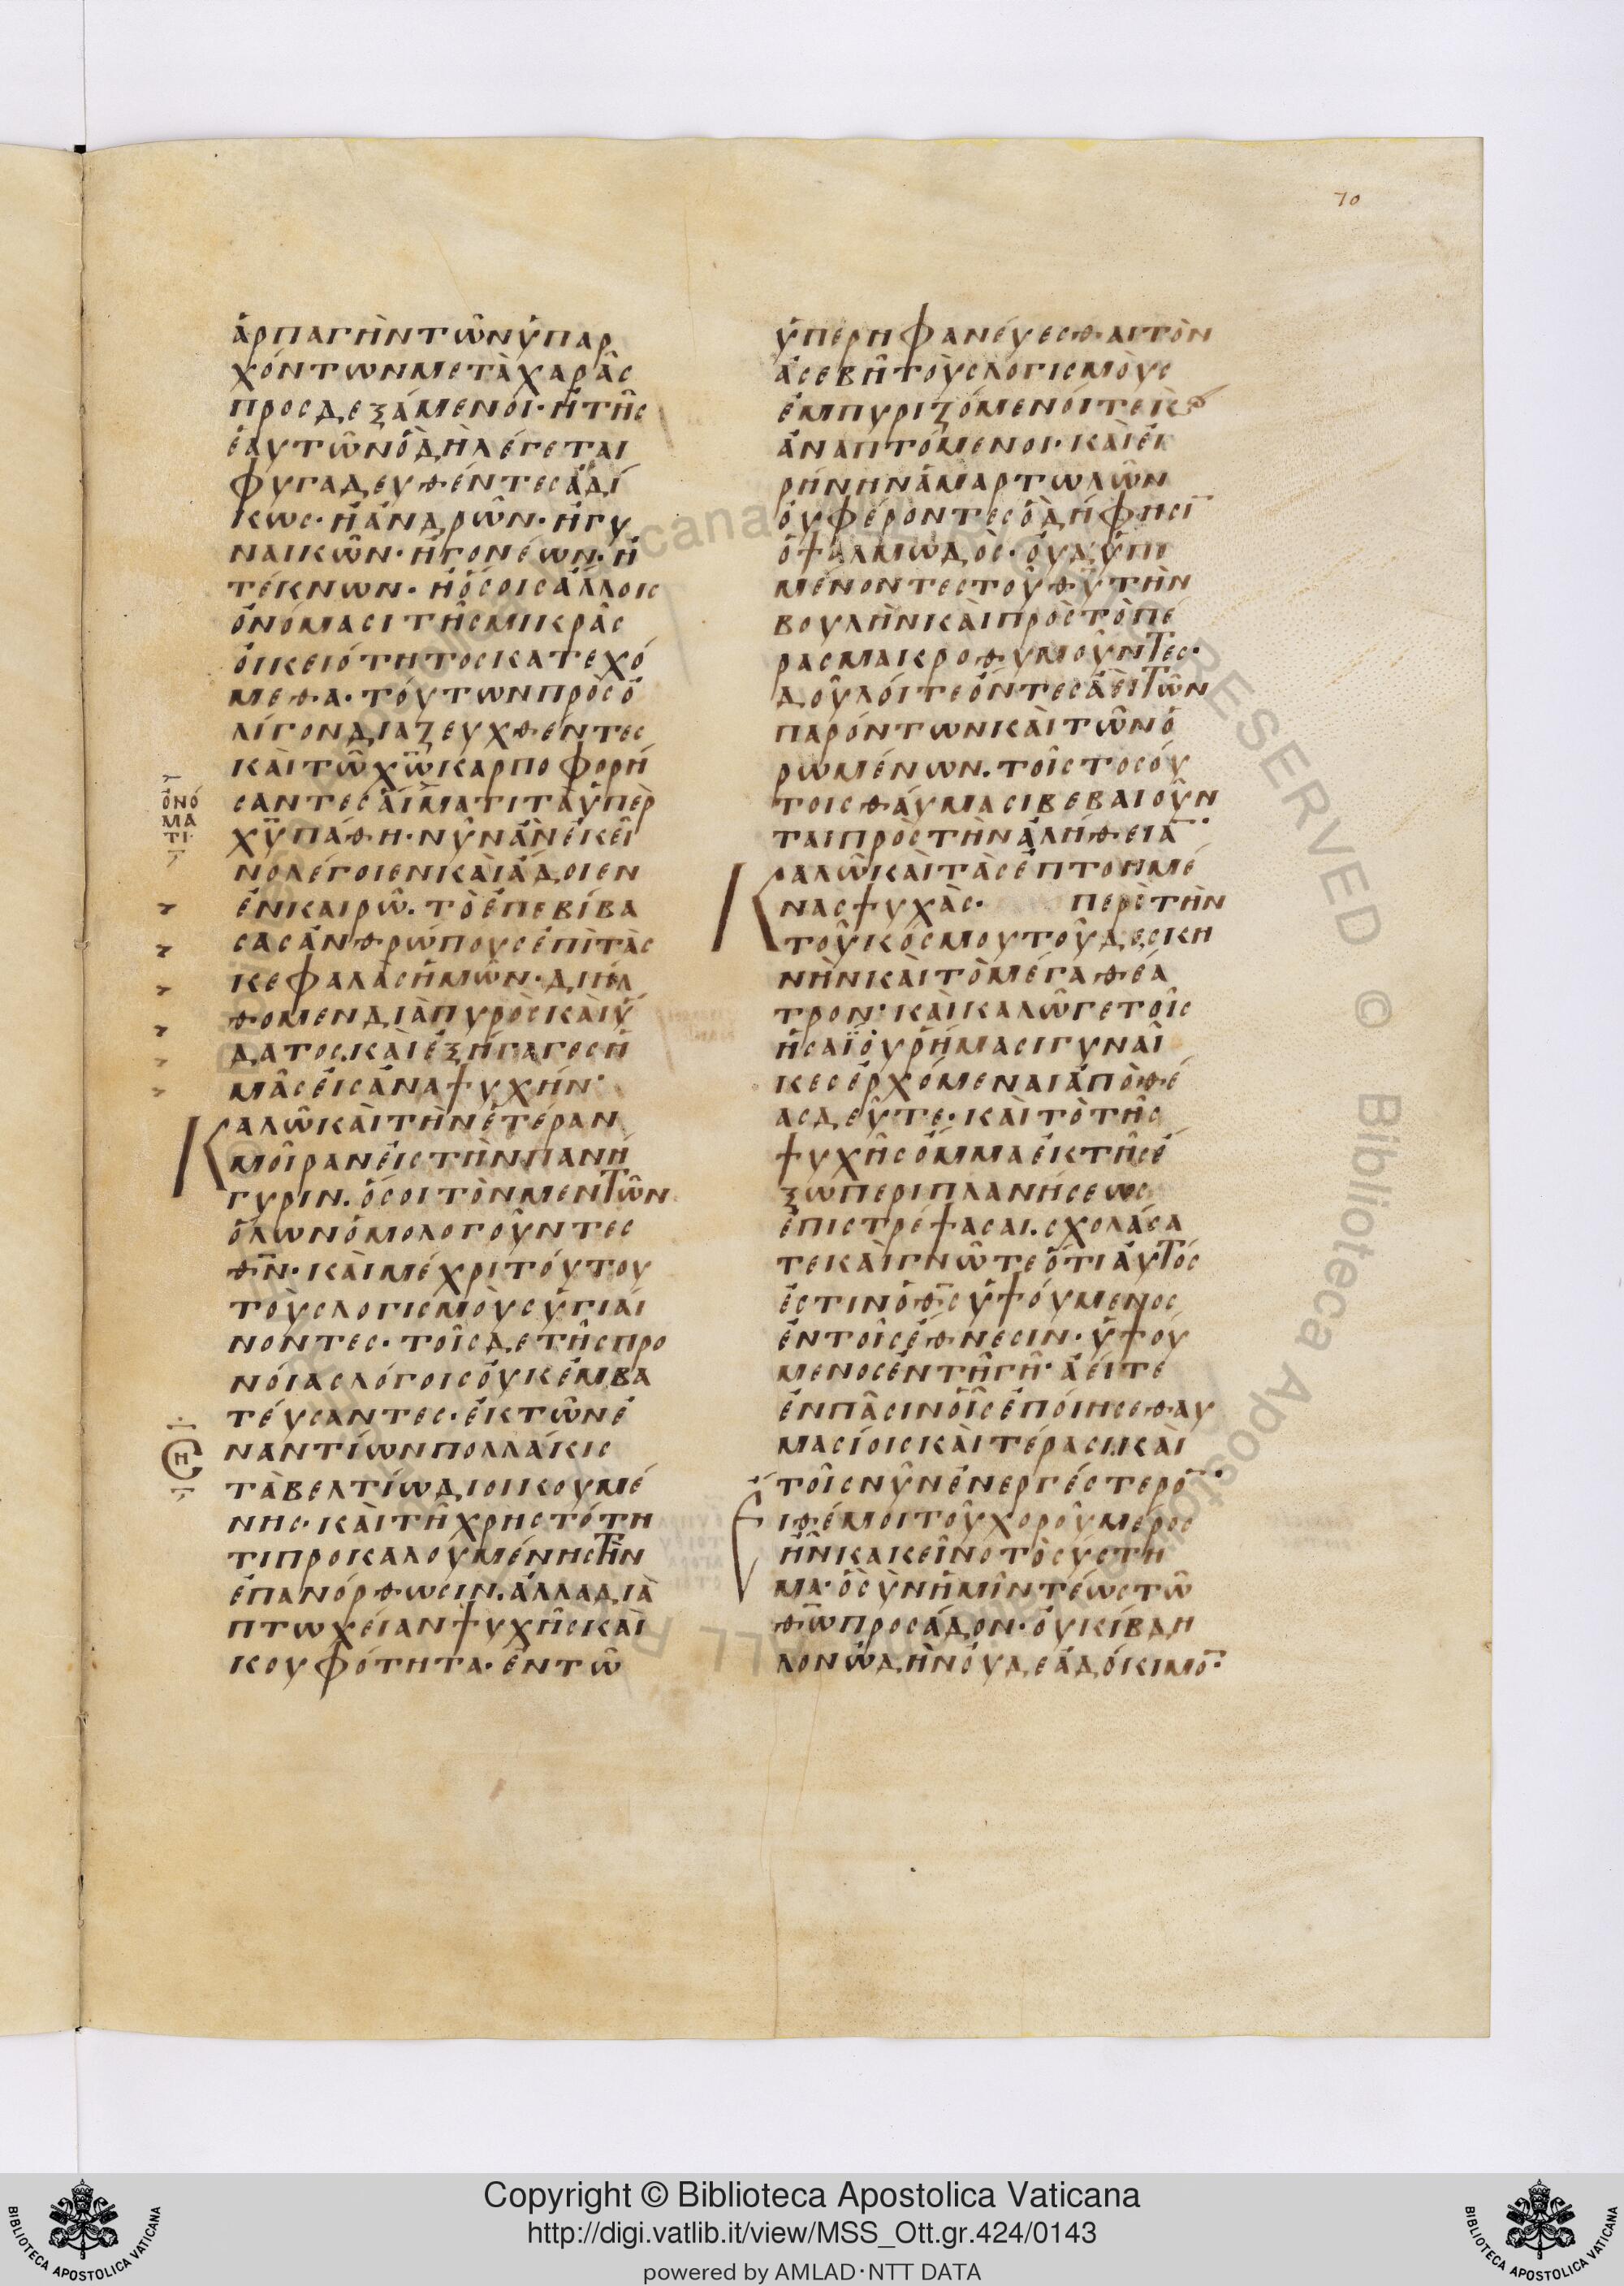 70
ἁρπαγὴν τῶν ὑπαρ
χόντων μετὰ χαρᾶς
προσδεξάμενοι· ἢ τῆς
ἑαυτῶν ὃ δὴ λέγεται
φυγαδευθέντες ἀδί
κως· ἢ ἀνδρῶν· ἢ γυ
ναικῶν· ἢ γονέων· ἢ
τέκνων· ἢ ὅσοις ἄλλοις
ὀνόμασι τῆς μικρᾶς
οἰκειότητος κατεχό
μεθα· τούτων πρὸς ὀ
λίγον διαζευχθέντες
καὶ τῶ χω καρποφορή
σαντες αἵματι τὰ ὑπὲρ
χυ πάθη· νῦν ἂν ἐκεῖ
νο λέγοιεν καὶ ἄδοιεν
ἐν καιρῶ. τὸ ἐπεβίβα
σας ἀνθρώπους ἐπὶ τὰς
κεφαλὰς ἡμῶν· διήλ
θομεν διὰ πυρὸς καὶ ὕ
δατος. καὶ ἐξήγαγες ἡ
μᾶς εἰς ἀναψυχήν·
Καλῶ καὶ τὴν ἑτέραν
μοῖραν εἰς τὴν πανή
γυριν. ὅσοι τὸν μὲν τῶν
ὅλων ὁμολογοῦντες
θν· καὶ μέχρι τούτου
τοὺς λογισμοὺς ὑγιαί
νοντες· τοῖς δὲ τῆς προ
νοίας λόγοις οὐκ ἐμβα
τεύσαντες· ἐκ τῶν ἐ
ναντίων πολλάκις
τὰ βελτίω διοικουμέ
νης· καὶ τῆ χρηστότη
τι προκαλουμένης τὴν
ἐπανόρθωσιν. ἀλλὰ διὰ
πτωχείαν ψυχῆς καὶ
κουφότητα· ἐν τῶ
ὀνό
μα
τι·
ὑπερηφανεύεσθαι τὸν
ἀσεβῆ τοὺς λογισμοὺς
ἐμπυριζόμενοί τε κ
ἀναπτόμενοι· καὶ εἰ
ρήνην ἁμαρτωλῶν
οὐ φέροντες ὃ δή φησι
ὁ ψαλμωδὸς· οὐδ ὑπο
μένοντες τοῦ θυ τὴν
βουλὴν καὶ πρὸς τὸ πέ
ρας μακροθυμοῦντες·
δοῦλοί τε ὄντες ἀεὶ τῶν
παρόντων καὶ τῶν ὁ
ρωμένων. τοῖς τοσού
τοις θαύμασι βεβαιοῦν
ται πρὸς τὴν ἀλήθεια·
Καλῶ καὶ τὰς ἐπτοημέ
νας ψυχὰς· περὶ τὴν
τοῦ κόσμου τοῦδε σκη
νὴν καὶ τὸ μέγα θέα
τρον· καὶ καλῶ γε τοῖς
ἠσαΐου ῥήμασι γυναῖ
κες ἐρχόμεναι ἀπὸ θέ
ας δεῦτε· καὶ τὸ τῆς
ψυχῆς ὄμμα ἐκ τῆς ἔ
ξω περιπλανήσεως
ἐπιστρέψασαι. σχολάσα
τε καὶ γνῶτε ὅτι αὐτός
ἐστιν ὁ θς ὑψούμενος
ἐν τοῖς ἔθνεσιν· ὑψού
μενος ἐν τῆ γῆ· ἀεί τε
ἐν πᾶσιν οἷς ἐποίησε θαυ
μασίοις καὶ τέρασι. καὶ
τοῖς νῦν ἐνεργέστερο·
Εἴθε μοι τοῦ χοροῦ μέρος
ἦν κἀκεῖνο τὸ σύστη
μα· ὃ σὺν ἡμῖν τέως τῶ
θω προσᾶδον· οὐ κίβδη
λον ὠδὴν οὐδὲ ἀδόκιμο·
Copyright © Biblioteca Apostolica Vaticana
http://digi.vatlib.it/view/MSS_Ott.gr.424/0143
powered by AMLAD·NTT DATA